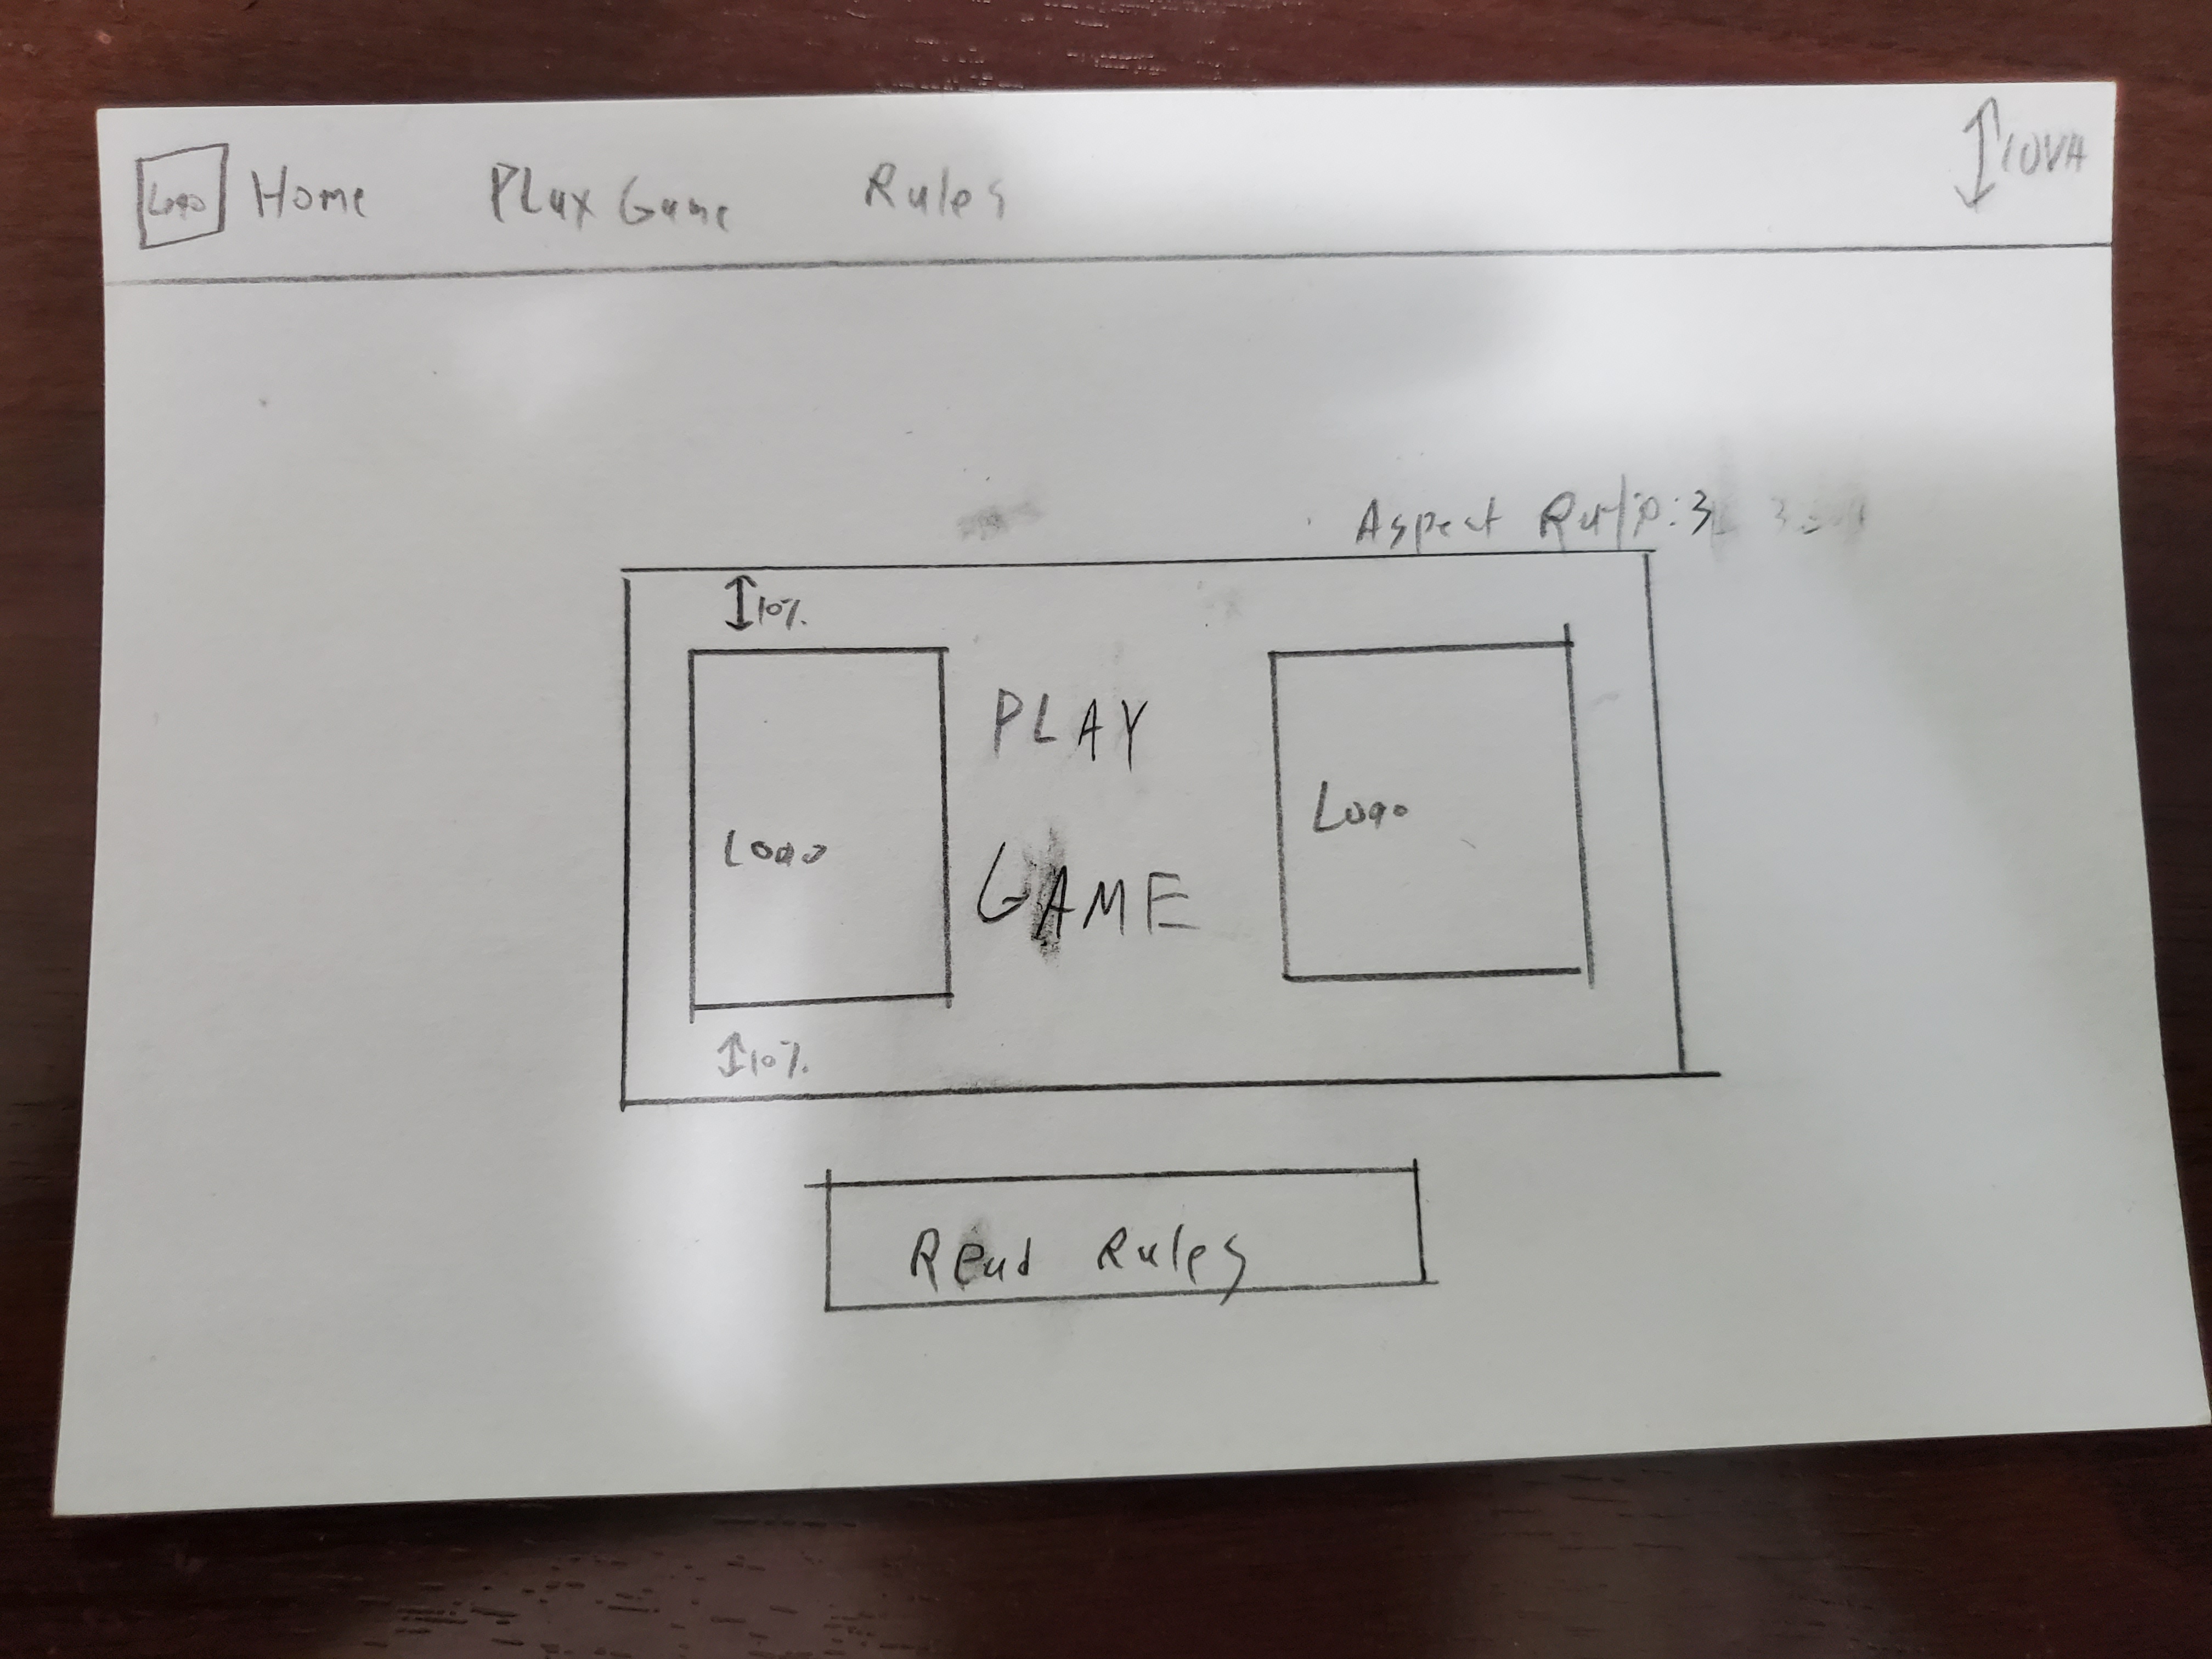 Logo Home Play Game Rules 10VH
Aspect Ratio: 3
10%
PLAY
Logo
Logo
GAME
10%
Read Rules